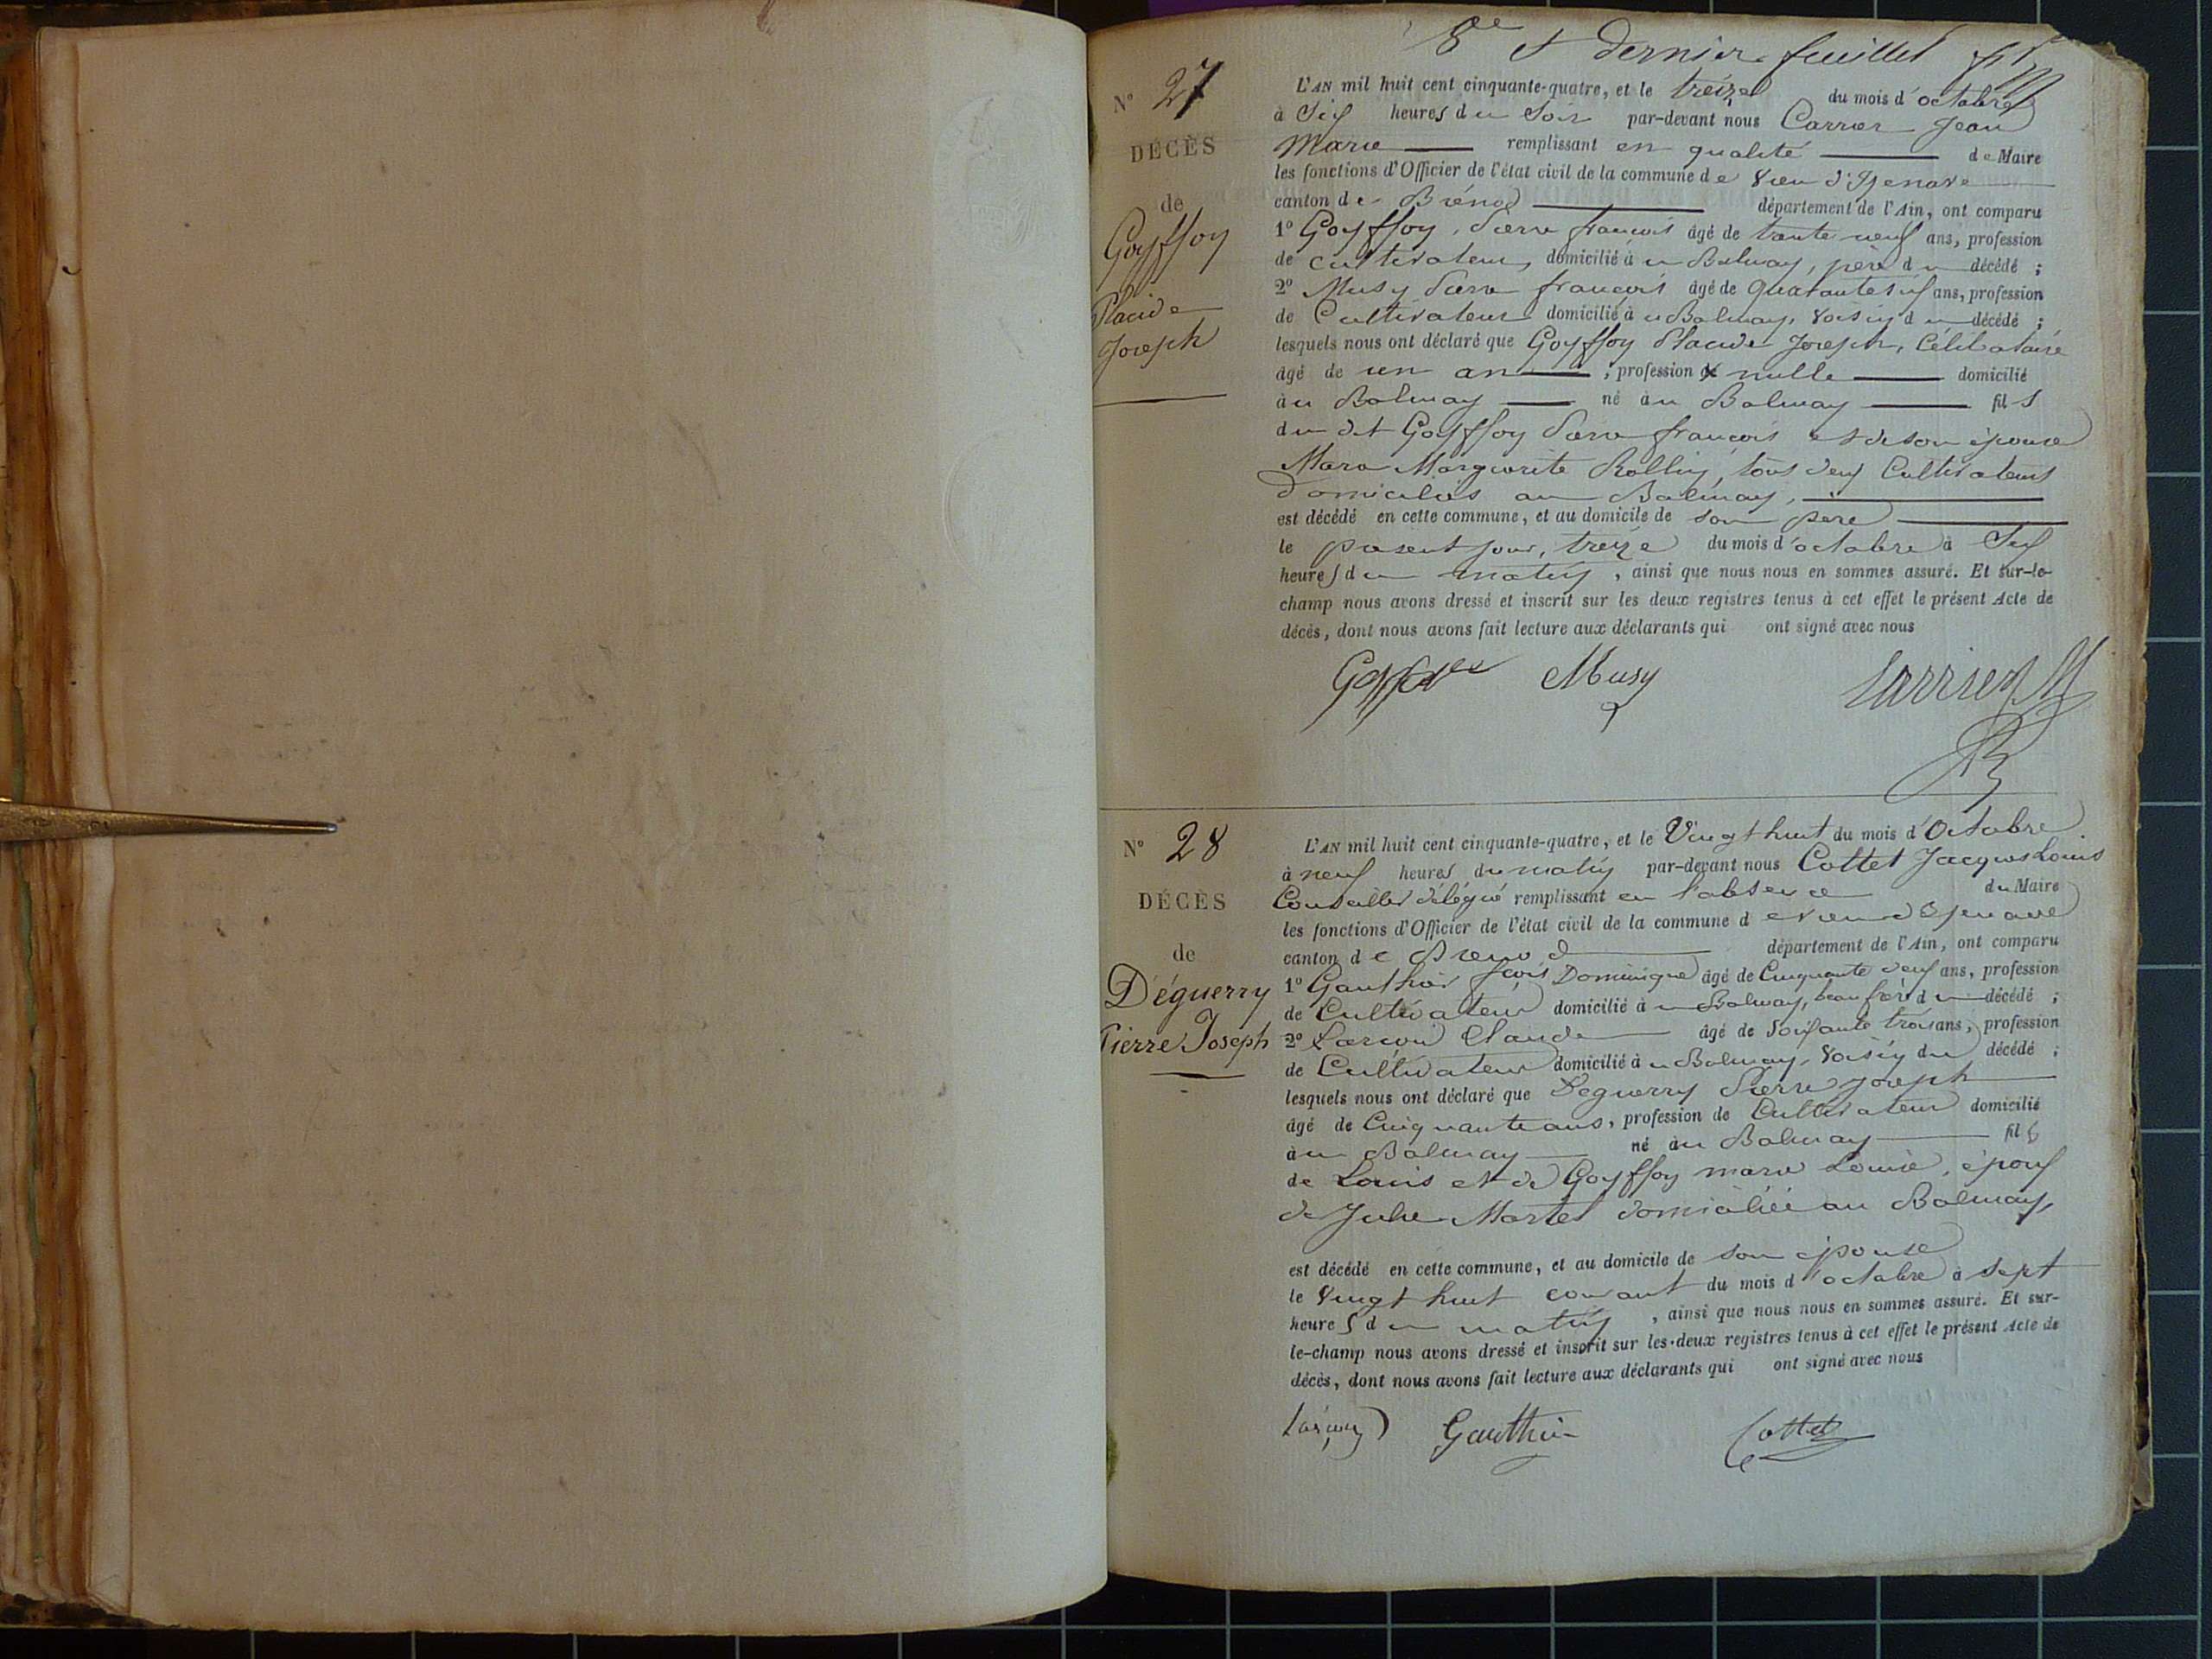 8e et dernier feuillet
N° 27
DÉCÈS
de
Goyffoy
Placide
Joseph
L'AN mil huit cent cinquante-quatre, et le treize du mois d'octobre
à Six heures du Soir par-devant nous Carrier Jean
Marie remplissant en qualité de Maire
les fonctions d'Officier de l'état civil de la commune de Vieu d'Izenave
canton de Brénod département de l'Ain, ont comparu
1° Goyffoy Pierre françois âgé de trente neuf ans, profession
de cultivateur, domicilié à u Balmay, père du décédé ;
2° Musy Pierre françois âgé de quarante six ans, profession
de Cultivateur domicilié à u Balmay, voisin du décédé ;
lesquels nous ont déclaré que Goyffoy Placide Joseph, Célibataire
âgé de un an ; profession de nulle domicilié
à u Balmay né à u Balmay fils
du dit Goyffoy Pierre françois et de son épouse
Marie Marguerite Rollin, tous deux Cultivateurs
domiciliés au Balmay,
est décédé en cette commune, et au domicile de son père
le présent jour, treize du mois d'octobre à Six
heures du matin, ainsi que nous nous en sommes assuré. Et sur-le-
champ nous avons dressé et inscrit sur les deux registres tenus à cet effet le présent Acte de
décès, dont nous avons fait lecture aux déclarants qui ont signé avec nous
Musy Carrier
N° 28
DÉCÈS
de
Déguerry
Pierre Joseph
L'AN mil huit cent cinquante-quatre, et le Vingt huit du mois d'Octobre
à neuf heures du matin par-devant nous Cottet Jacques Louis
Conseiller délégué remplissant en l'absence du Maire
les fonctions d'Officier de l'état civil de la commune de Vieu d'Izenave
canton de Brenod département de l'Ain, ont comparu
1° Gauthier fçois Dominique âgé de Cinquante deux ans, profession
de Cultivateur domicilié à u Balmay, beau frère du décédé ;
2° Larçon Claude âgé de Soixante trois ans, profession
de Cultivateur domicilié à u Balmay, Voisin du décédé ;
lesquels nous ont déclaré que Deguerry Pierre Joseph
âgé de Cinquante ans, profession de Cultivateur domicilié
à u Balmay né à u Balmay fils
de Louis et de Goyffoy marie Louise, époux
de Julie Martel domiciliée au Balmay,
est décédé en cette commune, et au domicile de son épouse
le Vingt huit courant du mois d'octobre à sept
heures du matin, ainsi que nous nous en sommes assuré. Et sur-
le-champ nous avons dressé et inscrit sur les deux registres tenus à cet effet le présent Acte de
décès, dont nous avons fait lecture aux déclarants qui ont signé avec nous
Larçon Gauthier Cottet